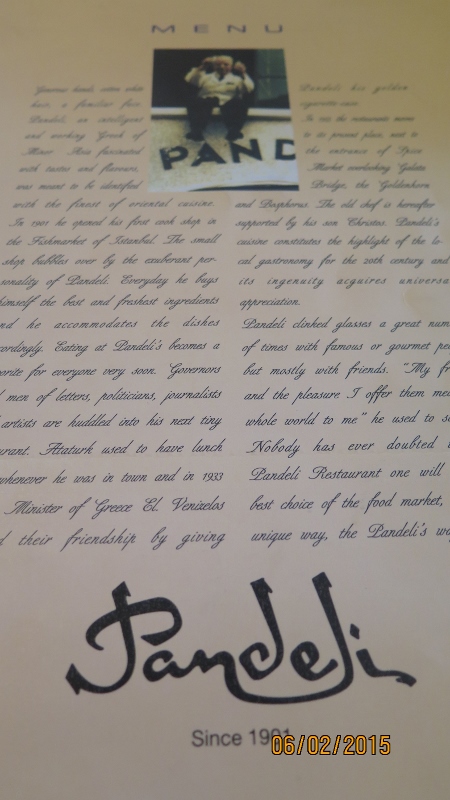 MENU
PAND
Generous hands, cotton white
hair, a familiar face.
Pandeli, an intelligent
and working Greek of
Minor Asia fascinated
with tastes and flavours,
was meant to be identified
with the finest of oriental cuisine.
In 1901 he opened his first cook shop in
the Fishmarket of Istanbul. The small
shop babbles over by the exuberant per-
sonality of Pandeli. Everyday he buys
himself the best and freshest ingredients
nd he accommodates the dishes
cordingly. Eating at Pandeli's becomes a
orite for everyone very soon. Governors
men of letters, politicians, journalists
artists are huddled into his next tiny
urant. Ataturk used to have lunch
whenever he was in town and in 1933
Minister of Greece El. Venizelos
d their friendship by giving
Pandeli his golden
cigarette case.
In the restaurant
to its present place, next to
the entrance of Spice
Market overlooking Galata
Bridge, the Goldenhorn
and Bosphorus. The old chef is hereafter
supported by his son Christos. Pandeli's
cuisine constitutes the highlight of the lo-
cal gastronomy for the 20th century and
its ingenuity acquires universa
appreciation.
Pandeli clinked glasses a great num
of times with famous or gourmet pe
but mostly with friends. "My fr
and the pleasure I offer them me
whole world to me" he used to s
Nobody has ever doubted
Pandeli Restaurant one will
best choice of the food market,
unique way, the Pandeli's wa
Pandeli
Since 1901
06/02/2015